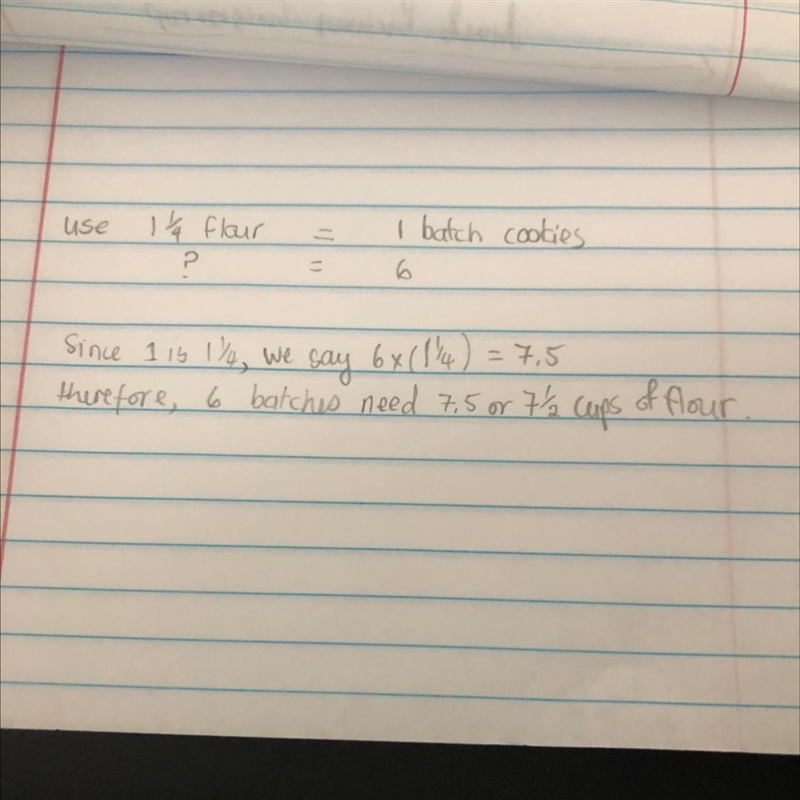 use 1 1/4 flour = 1 batch cookies
? = 6
Since 1 is 1 1/4, we say 6 × (1 1/4) = 7.5
therefore, 6 batches need 7.5 or 7 1/2 cups of flour.